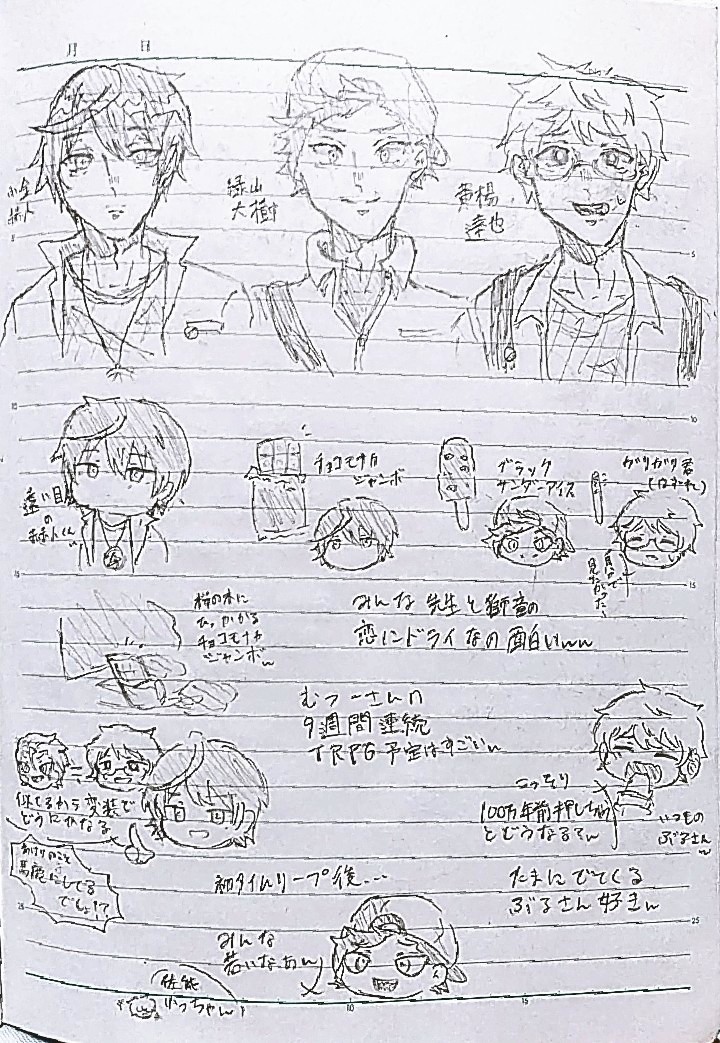 月 日
緑山
大樹
黄楊
達也
遠い目
の
チョコモナカ
ジャンボ
ブラック
サンダーアイス
がりがり君
桜の木に
ひっかかる
チョコモナカ
ジャンボw
みんな先生と獅竜の
恋にドライなの面白いww
むつーさんの
9週間連続
TRPG予定はすごいw
似てるから変装で
どうにかなる
こっそり
100万年前押しちゃう
とどうなるてw
いつもの
ぶるさんw
あけびのこと
馬鹿にしてる
でしょ!?
初タイムリープ後…
たまにでてくる
ぶるさん好きw
みんな
若いなあw
5
10
15
10
15
25
10
15